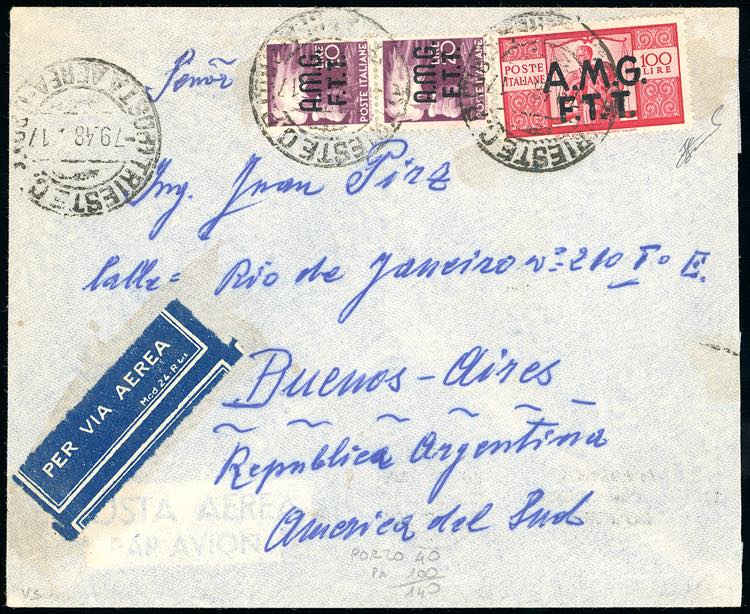 Señor
Ing. Juan Pirz
Calle = Rio de Janeiro nº 210 Iº E.
Buenos-Aires
Republica Argentina
America del Sud
A.M.G.
F.T.T.
20 LIRE
POSTE ITALIANE
A.M.G.
F.T.T.
20
POSTE ITALIANE
POSTE
ITALIANE
100
LIRE
A.M.G.
F.T.T.
TRIESTE C.
POSTA AEREA
7 9.48.17
TRIESTE C.
TRIESTE C.
PER VIA AEREA
Mod. 24-R bis
POSTA AEREA
PAR AVION
PORTO 40
PA 100
140
VS